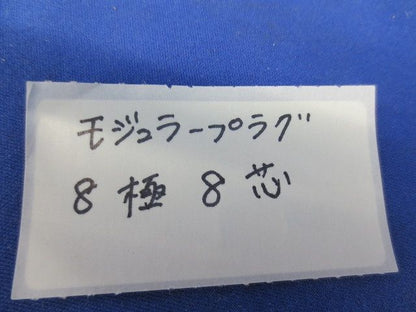 モジュラープラグ
8極 8芯